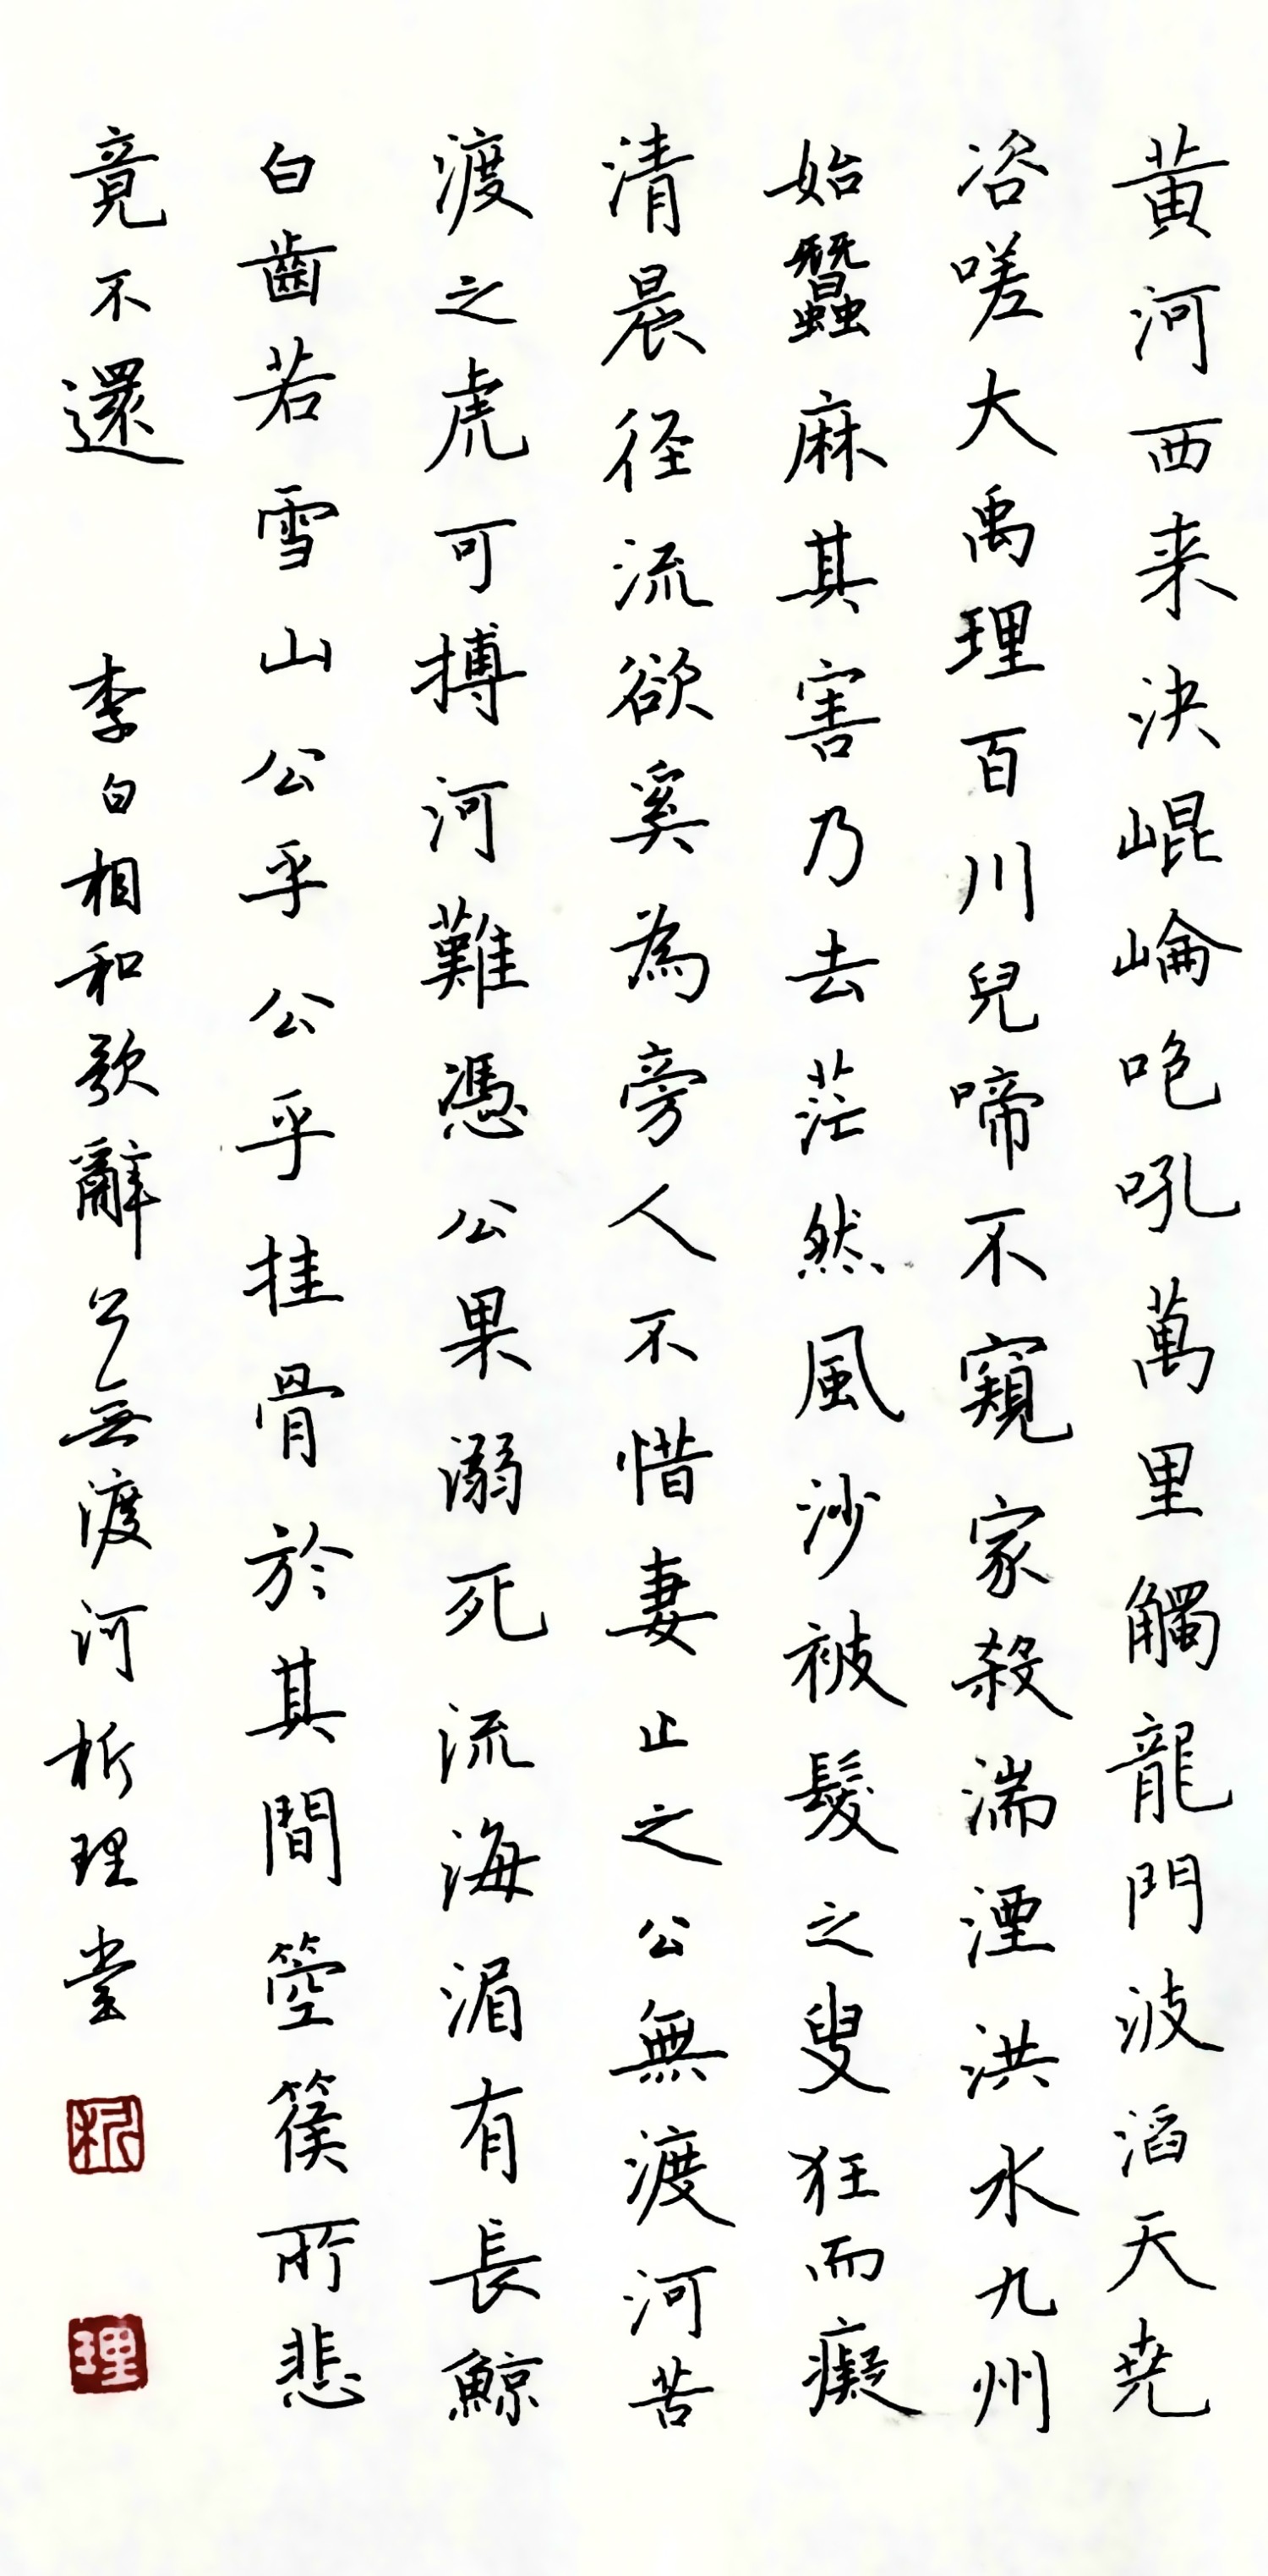 黃河西来決崐崘咆吼萬里觸龍門波滔天尭
咨嗟大禹理百川兒啼不窺家殺湍湮洪水九州
始蠶麻其害乃去茫然風沙被髮之叟狂而癡
清晨径流欲奚為旁人不惜妻止之公無渡河苦
渡之虎可搏河難憑公果溺死流海湄有長鯨
白齒若雪山公乎公乎挂骨於其間箜篌所悲
竟不還
李白相和歌辭公無渡河析理堂
析
理